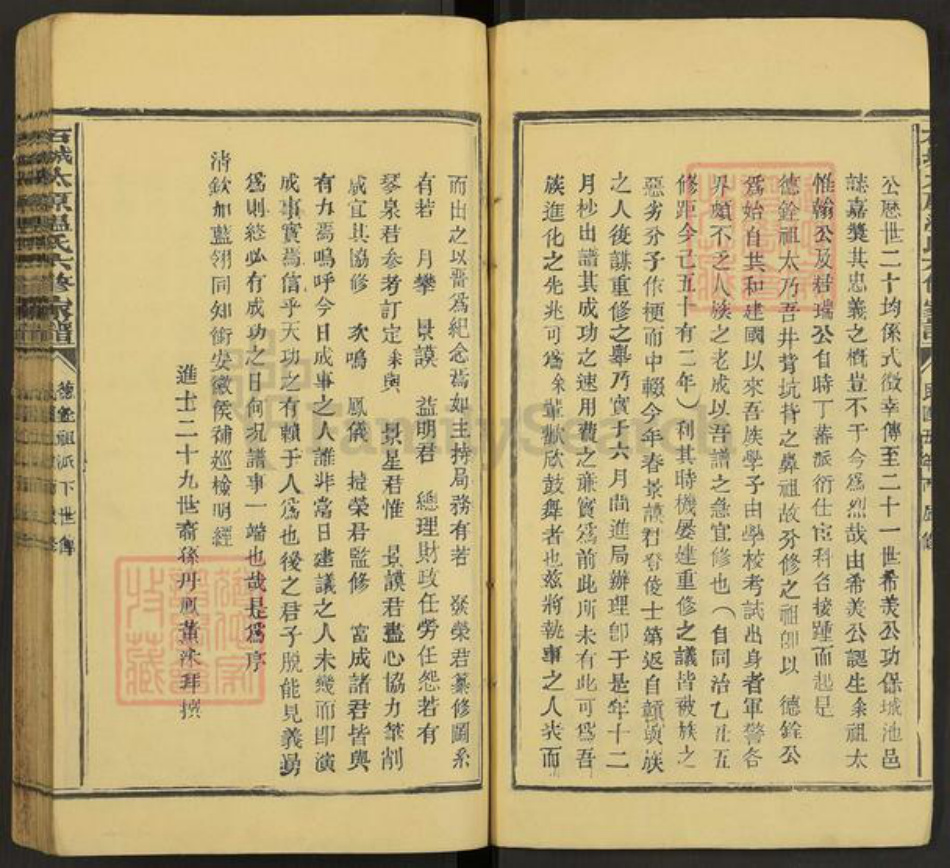 公歷世二十均係式微幸傳至二十一世希羲公功保城池邑
誌嘉獎其忠義之慨豈不于今爲烈哉由希羲公誕生朶祖太
惟翰公及君瑞公自時丁蕃派衍仕宦科名接踵而起是
德銓祖太乃吾井背坑背之鼻祖故分修之祖卽以 德銓公
爲始自共和建國以來吾族學子由學校考試出身者軍警各
界頗不乏人族之老成以吾譜之急宜修也(自同治乙丑五
修距今已五十有二年)利其時機屢建重修之議皆被族之
惡劣分子作梗而中輟今年春景謨君登俊士第返自 族
之人後謀重修之舉乃實于六月間進局辦理卽于是年十二
月杪出譜其成功之速用費之亷實爲前此所未有此可爲吾
族進化之先兆可爲余輩歡欣鼓舞者也兹將執事之人表而
而出之以誓爲紀念焉如主持局務有若 發榮君纂修圖系
有若 月攀 景謨 益明君 總理財政任勞任怨若有
琴泉君參考訂定采與 景星君惟 景謨君盡心協力筆削
咸宜其協修 次鳴 鳳儀 揎榮君監修 富成諸君皆與
有力焉嗚呼今日成事之人誰非當日建議之人未幾而卽演
成事實焉信乎天功之有賴于人爲也後之君子脫能見義勇
爲則終必有成功之日何况譜事一端也哉是爲序
清欽加藍翎同知銜安徽候補巡檢明經
進士二十九世裔孫丹鳳薰沐拜撰
石城太原溫氏六修家譜
德銓祖派下世傳
FamilySearch